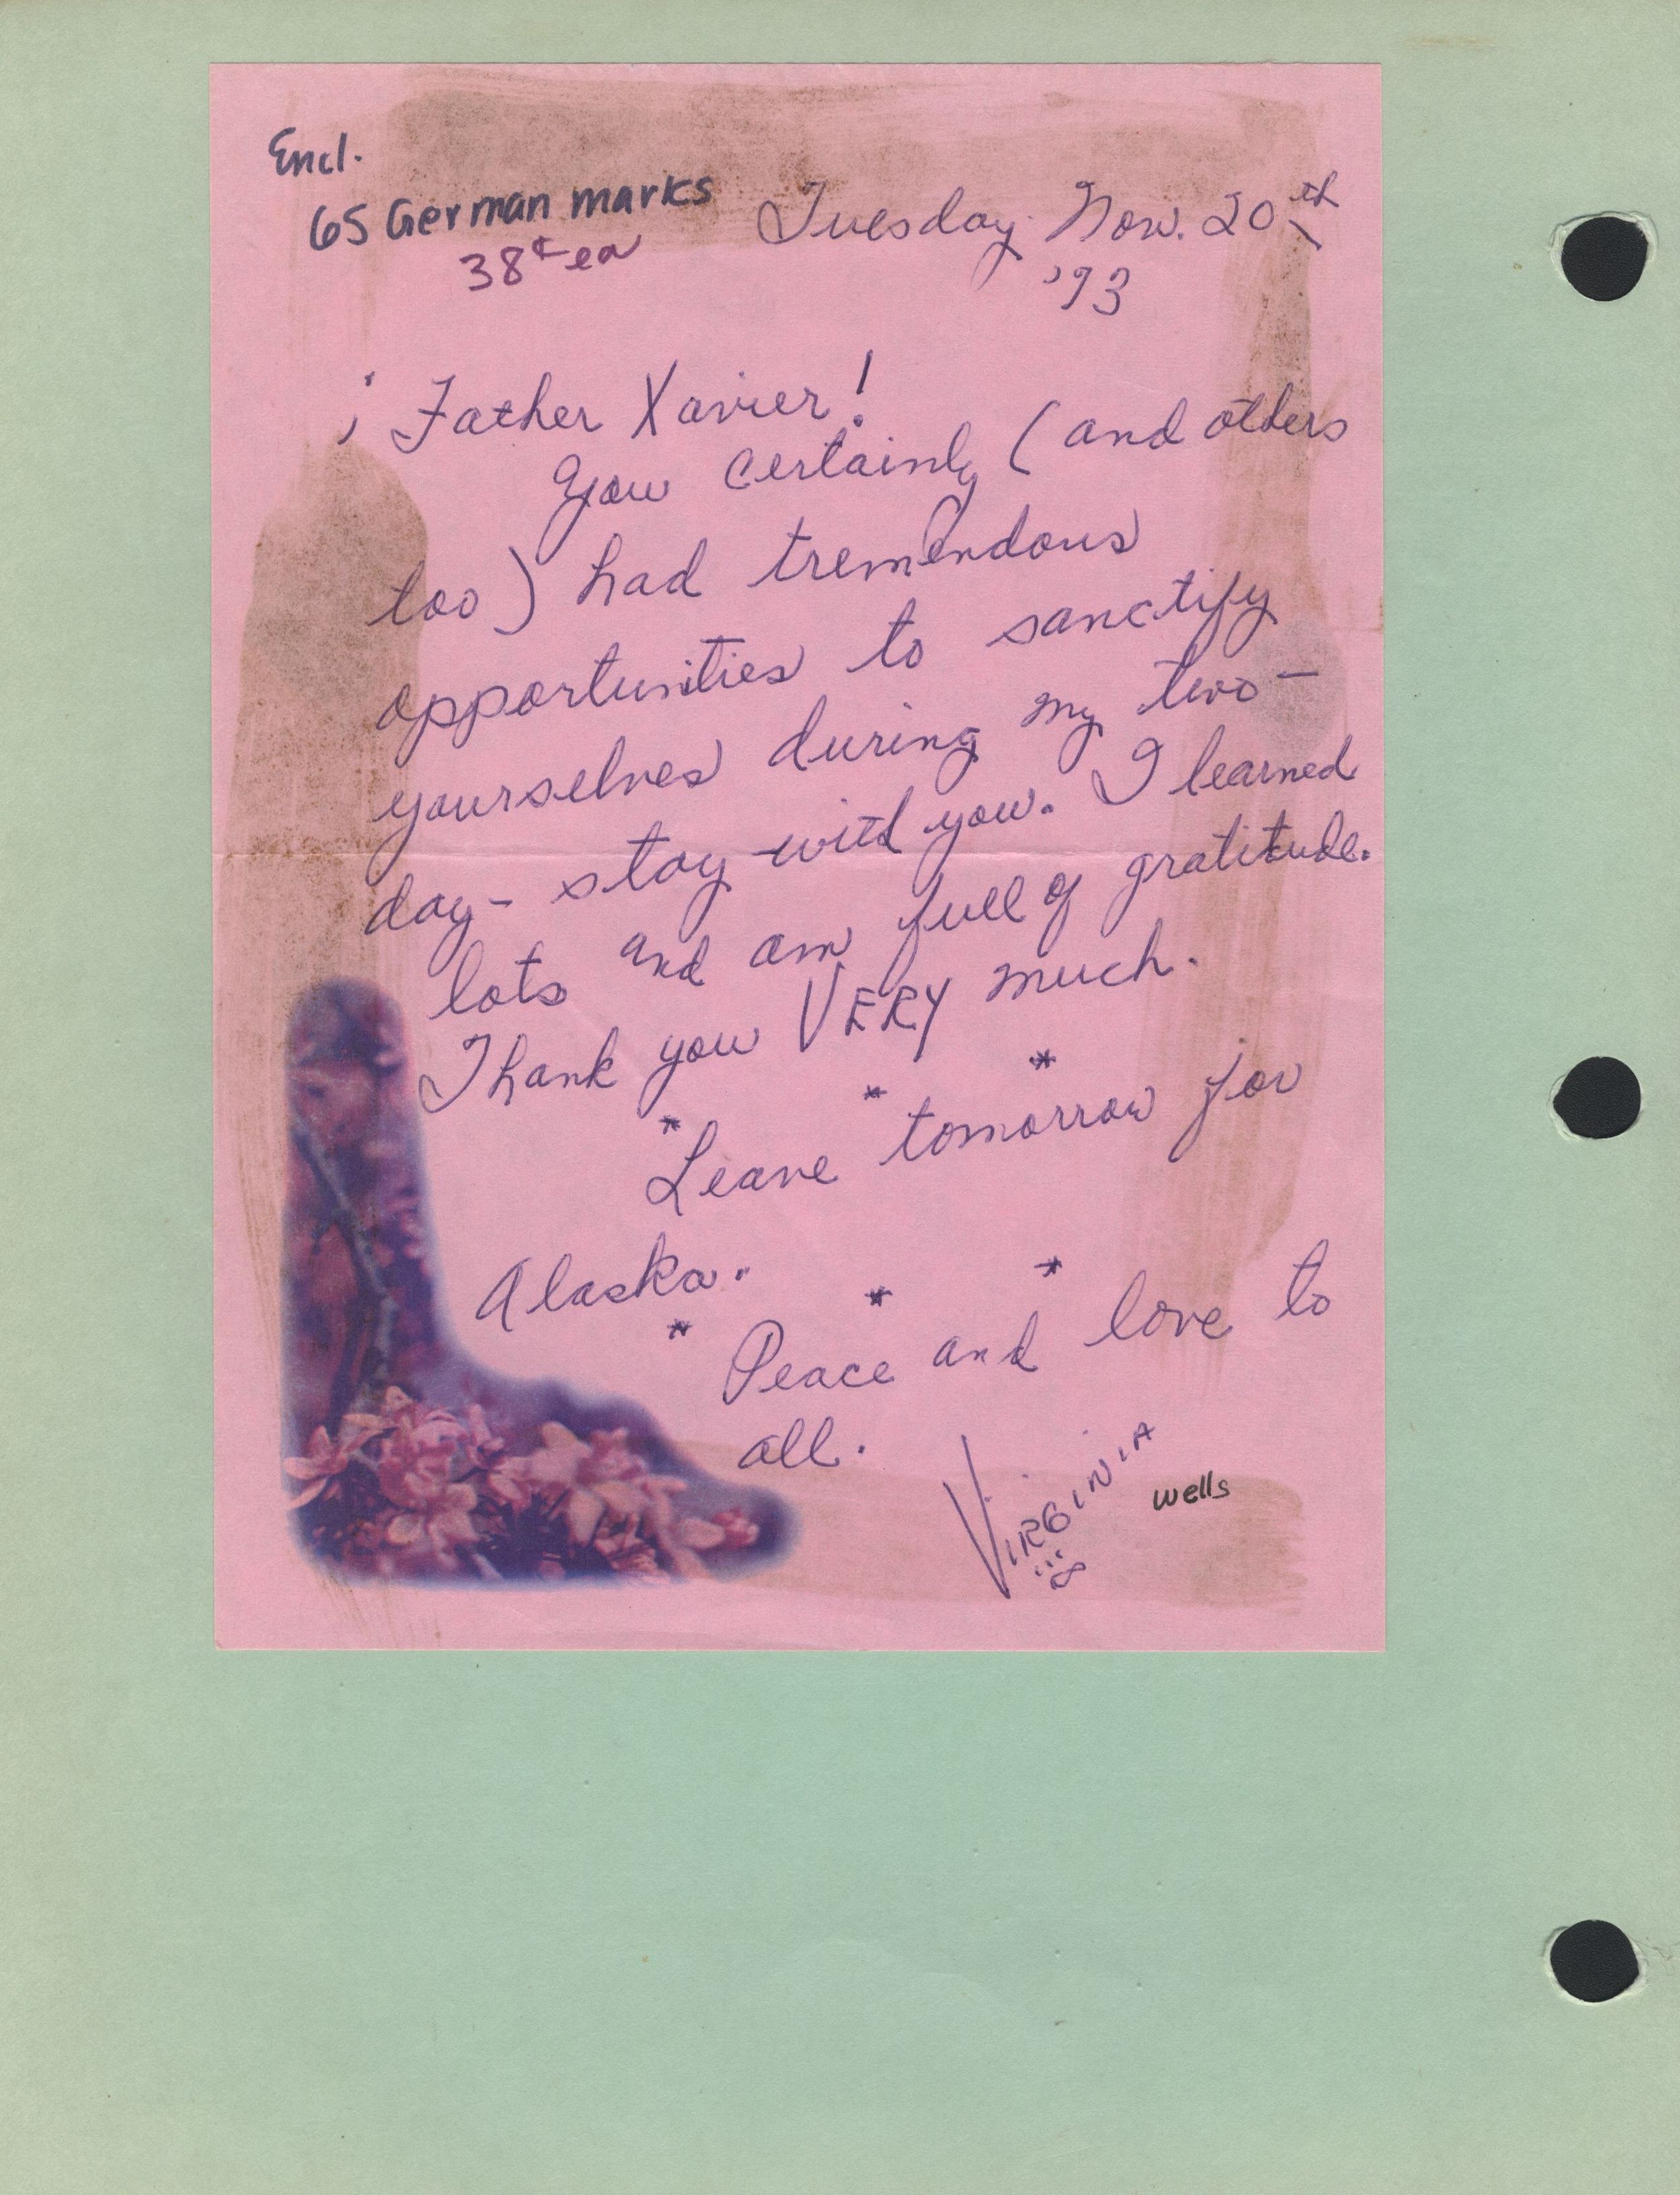 Encl.
65 German marks
38¢ ea
Tuesday Nov. 20th
'73
¡ Father Xavier!
You certainly (and others
too) had tremendous
opportunities to sanctify
yourselves during my two-
day- stay with you. I learned
lots and am full of gratitude.
Thank you VERY much.
* * *
Leave tomorrow for
Alaska.
* * *
Peace and love to
all.
VIRGINIA
wells